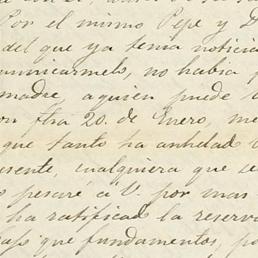 Por el mismo Pepe y D
del que ya tenia noticia
municarmelo, no habia
madre, a quien puede
20. de Enero, me
que tanto ha anhelado
esente, cualquiera que se
pesaré á V. por mas
ha ratificado la reserva
que fundamentos, po